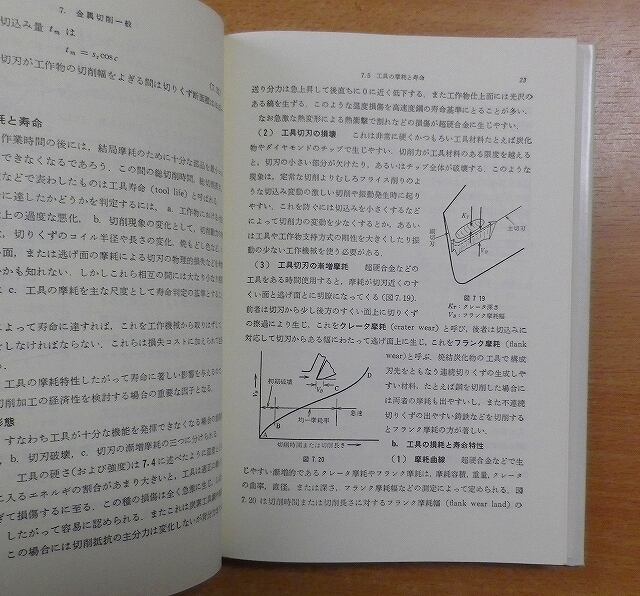 7. 金属切削一般
切込み量 tm は
tm = s, cos c
切刃が工作物の切削幅をよぎる間は切りくず断面積は
耗と寿命
作業時間の後には、結局摩耗のために十分な部品を
できなくなるであろう．この間の総切削時間，総切削
などで表わしたものは工具寿命 (tool life) と呼ばれる．
に達したかどうかを判定するには， a. 工作物における
上の過度な悪化， b. 切削現象の変化として，切削動力
は，切りくずのコイル半径や長さの変化，焼もどしなど，
い面，または逃げ面の摩耗による切刃の物理的損失など
かも知れない．しかしこれら相互の間には大なり小なり
は c. 工具の摩耗を主な尺度として寿命判定の基準とする
によって寿命に達すれば，これを工作機械から取りはずして
をしなければならない．これらは損失コストに加えられて
工具の摩耗特性したがって寿命に著しい影響を与えるため
切削加工の経済性を検討する場合の重要な因子となる．
形態
すなわち工具が十分な機能を発揮できなくなる場合の
, b. 切刃破壊， c. 切刃の漸増摩耗の三つに分けられる．
工具の硬さ (および強度) は 7.4 に述べたように温度の
に入るエネルギの割合があまり大きいと，工具は過度に
ぎて損傷するに至る．この種の損傷は全く急激に生じ，
したがって容易に認められる．またこれは炭素工具鋼や
この場合には切削抵抗の主分力は変化しないが
7.5 工具の摩耗と寿命 23
送り分力は急上昇して後直ちに 0 に近く低下する．また工作物仕上面には光沢の
ある縞を生ずる．このような温度損傷を高速度鋼の寿命基準にとることが多い．
なお急激な熱変形による熱衝撃で割れなどの損傷が超硬合金に生じやすい．
(2) 工具切刃の損壊 これは非常に硬くかつもろい工具材料たとえば炭化
物やダイヤモンドのチップで生じやすい．切削力が工具材料のある限度を越える
と，切刃の小さい部分が欠けたり，あるいはチップ全体が破壊する．このような
現象は，定常な切削よりむしろフライス削りのよ
うな切込み変動の激しい切削や振動発生時に起り
やすい．これを防ぐには切込みを小さくするなど
によって切削力の変動を少なくするとか，あるい
は工具や工作物支持方式の剛性を大きくしたり振
動の少ない工作機械を使う必要がある．
KT
副切刃
主切刃
VB
図 7.19
KT：クレータ深さ
VB：フランク摩耗幅
(3) 工具切刃の漸増摩耗 超硬合金などの
工具をある時間使用すると，摩耗が切刃近くのす
くい面と逃げ面とに明瞭になってくる (図 7.19)．
前者は切刃から少し後方のすくい面上に切りくず
の擦過により生じ，これをクレータ摩耗 (crater wear) と呼び，後者は切込みに
対応して切刃からある幅にわたって逃げ面上に生じ，これをフランク摩耗 (flank
wear) と呼ぶ．焼結炭化物の工具で構成
刃先をともなう連続切りくずの生成しや
すい材料，たとえば鋼を切削した場合に
は両者の摩耗も出やすいし，また不連続
切りくずの出やすい鋳鉄などを切削する
とフランク摩耗の方が著しい．
VB
初期破壊
VB
A
B
C
D
均一摩耗率
急速
切削時間または切削長さ
図 7.20
b. 工具の損耗と寿命特性
(1) 摩耗曲線 超硬合金などで生
じやすい漸増的であるクレータ摩耗やフランク摩耗は，摩耗容積，重量，クレータ
の曲率，直径，または深さ，フランク摩耗幅などの測定によって定められる．図
7.20 は切削時間または切削長さに対するフランク摩耗幅 (flank wear land) の